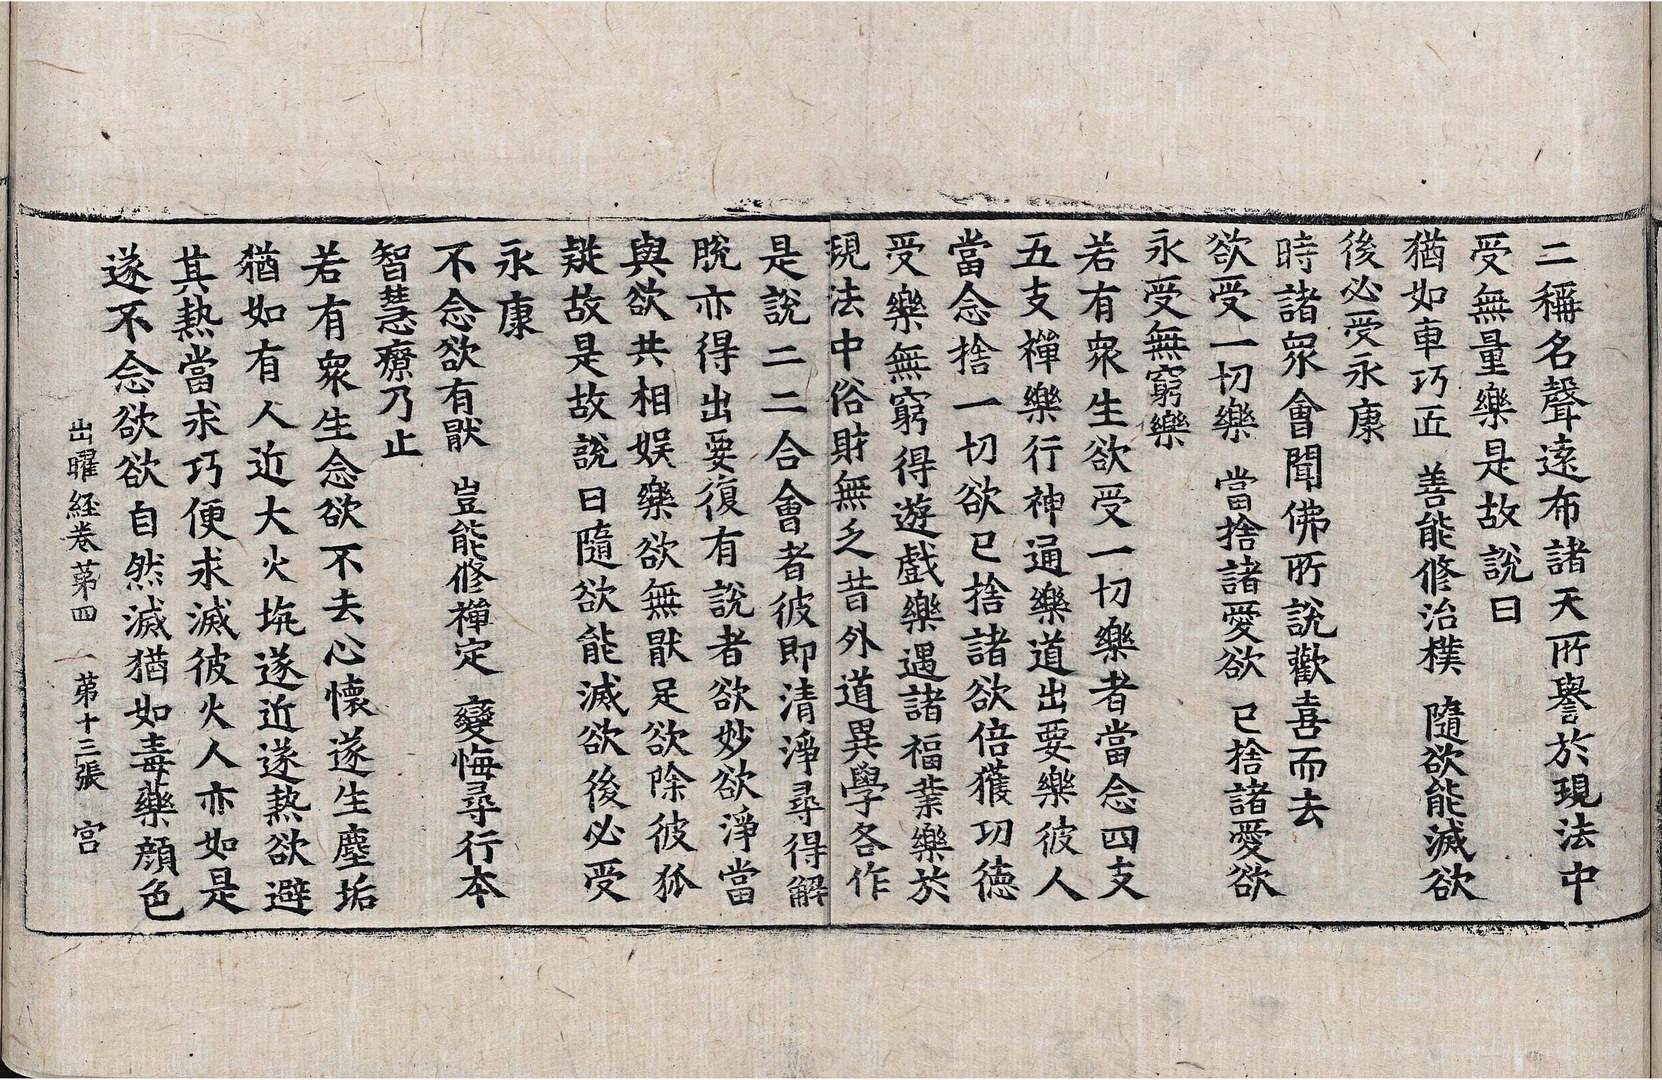 二稱名聲遠布諸天所譽於現法中
受無量樂是故說曰
猶如車巧匠　善能脩治樸　隨欲能滅欲
後必受永康
時諸衆會聞佛所說歡喜而去
欲受一切樂　當捨諸愛欲　已捨諸愛欲
永受無窮樂
若有衆生欲受一切樂者當念四支
五支禪樂行神通樂道出要樂彼人
當念捨一切欲已捨諸欲倍獲功德
受樂無窮得遊戲樂遇諸福業樂於
現法中俗財無乏昔外道異學各作
是說二二合會者彼即清淨尋得解
脫亦得出要復有說者欲妙欲淨當
與欲共相娛樂欲無猒足欲除彼狐
疑故是故說曰隨欲能滅欲後必受
永康
不念欲有猒　豈能脩禪定　變悔尋行本
智慧療乃止
若有衆生念欲不去心懷遂生塵垢
猶如有人近大火坑遂近遂熱欲避
其熱當求巧便求滅彼火人亦如是
遂不念欲欲自然滅猶如毒藥顏色
出曜経卷苐四　苐十三張　宫